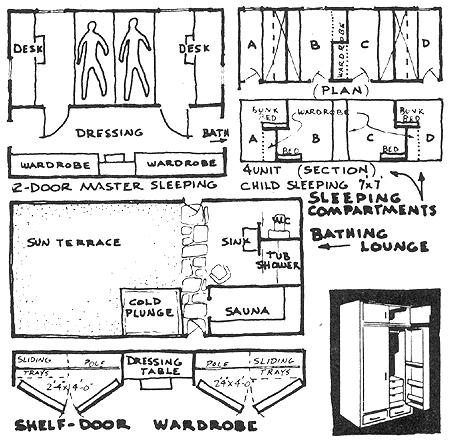 DESK
DESK
DRESSING
BATH
WARDROBE
WARDROBE
2-DOOR MASTER SLEEPING
A
B
WARDROBE
C
D
(PLAN)
BUNK BED
WARDROBE
BUNK BED
A
B
C
D
BED
BED
4 UNIT (SECTION)
CHILD SLEEPING 7'x7'
SLEEPING
COMPARTMENTS
BATHING
LOUNGE
SUN TERRACE
COLD
PLUNGE
WC
SINK
TUB
SHOWER
SAUNA
SLIDING
TRAYS
POLE
2'-4"x4'-0"
DRESSING
TABLE
POLE
SLIDING
TRAYS
2'4"x4'-0"
SHELF-DOOR WARDROBE